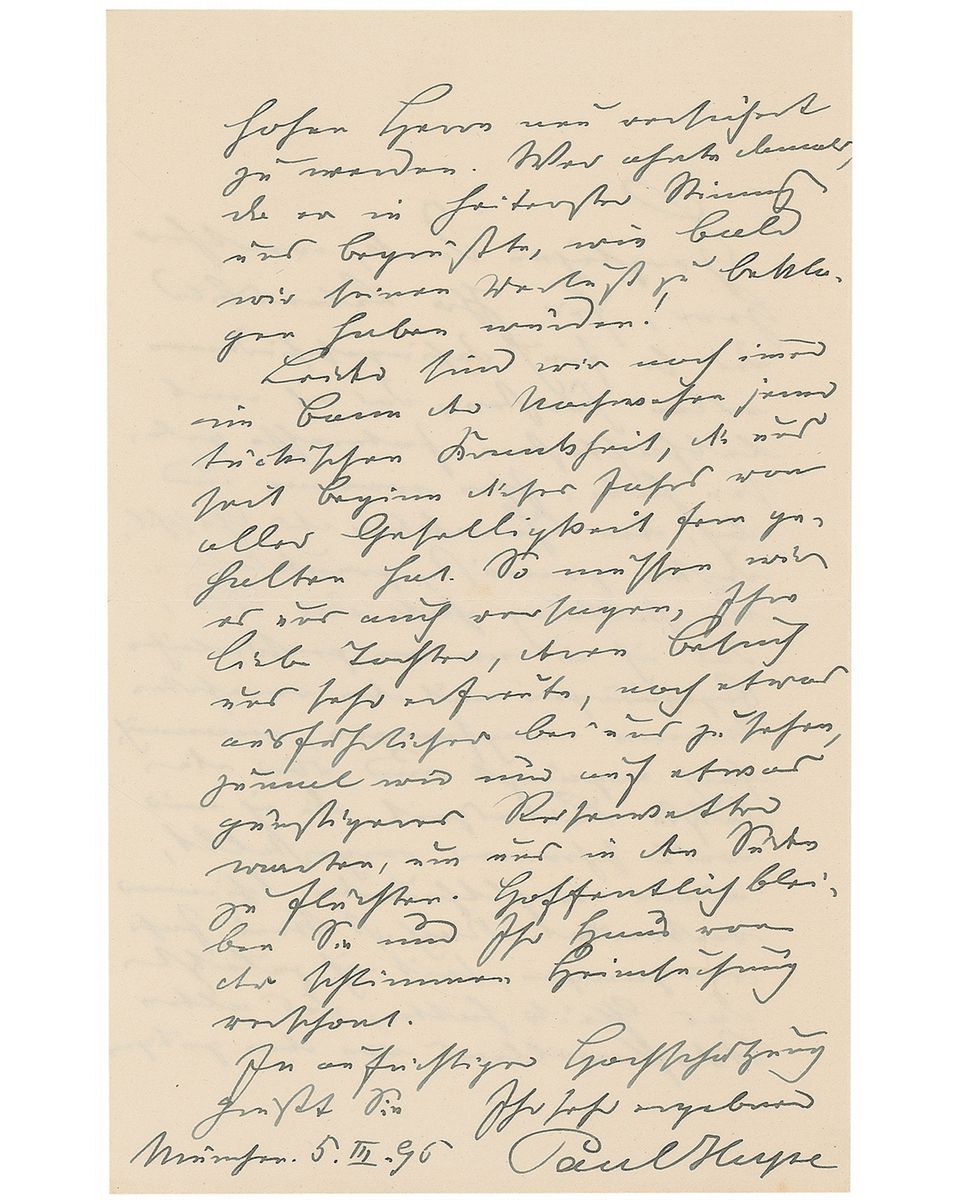 hohen Herrn neu versichert
zu werden. Wer ahnte damals,
da er in heiterster Stimmung
uns begrüßte, wie bald
wir seinen Verlust zu bekla-
gen haben würden!
Leider sind wir noch immer
im Bann der Nachwehen jener
tückischen Krankheit, die uns
seit Beginn dieses Jahres von
aller Geselligkeit fern ge-
halten hat. So müssen wir
es uns auch versagen, Ihre
liebe Tochter, deren Besuch
uns sehr erfreute, noch etwas
ausführlicher bei uns zu sehen,
zumal wir nur auf etwas
günstigeres Reisewetter
warten, um uns in den Süden
zu flüchten. Hoffentlich blei-
ben Sie und Ihr Haus von
der schlimmen Heimsuchung
verschont.
In aufrichtiger Hochschätzung
grüßt Sie Ihr sehr ergebener
München. 5. III. 96 Paul Heyse